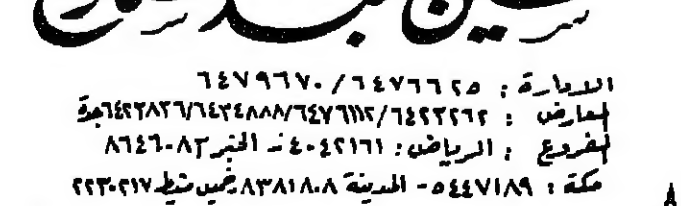 الادارة : ٦٤٧٦٦٢٥ / ٦٤٧٩٦٧٠
المعارض : ٦٤٢٣٢٦٢/٦٤٧٦١١٢/٦٤٣٤٨٨٨/٦٤٢٣٨٣٦ جدة
الفروع : الرياض : ٤٠٤٢١٦١ - الخبر ٨٦٤٦٠٨٣
مكة : ٥٤٤٧١٨٩ - المدينة ٨٣٨١٨٠٨ خميس مشيط ٢٢٣٠٢١٧